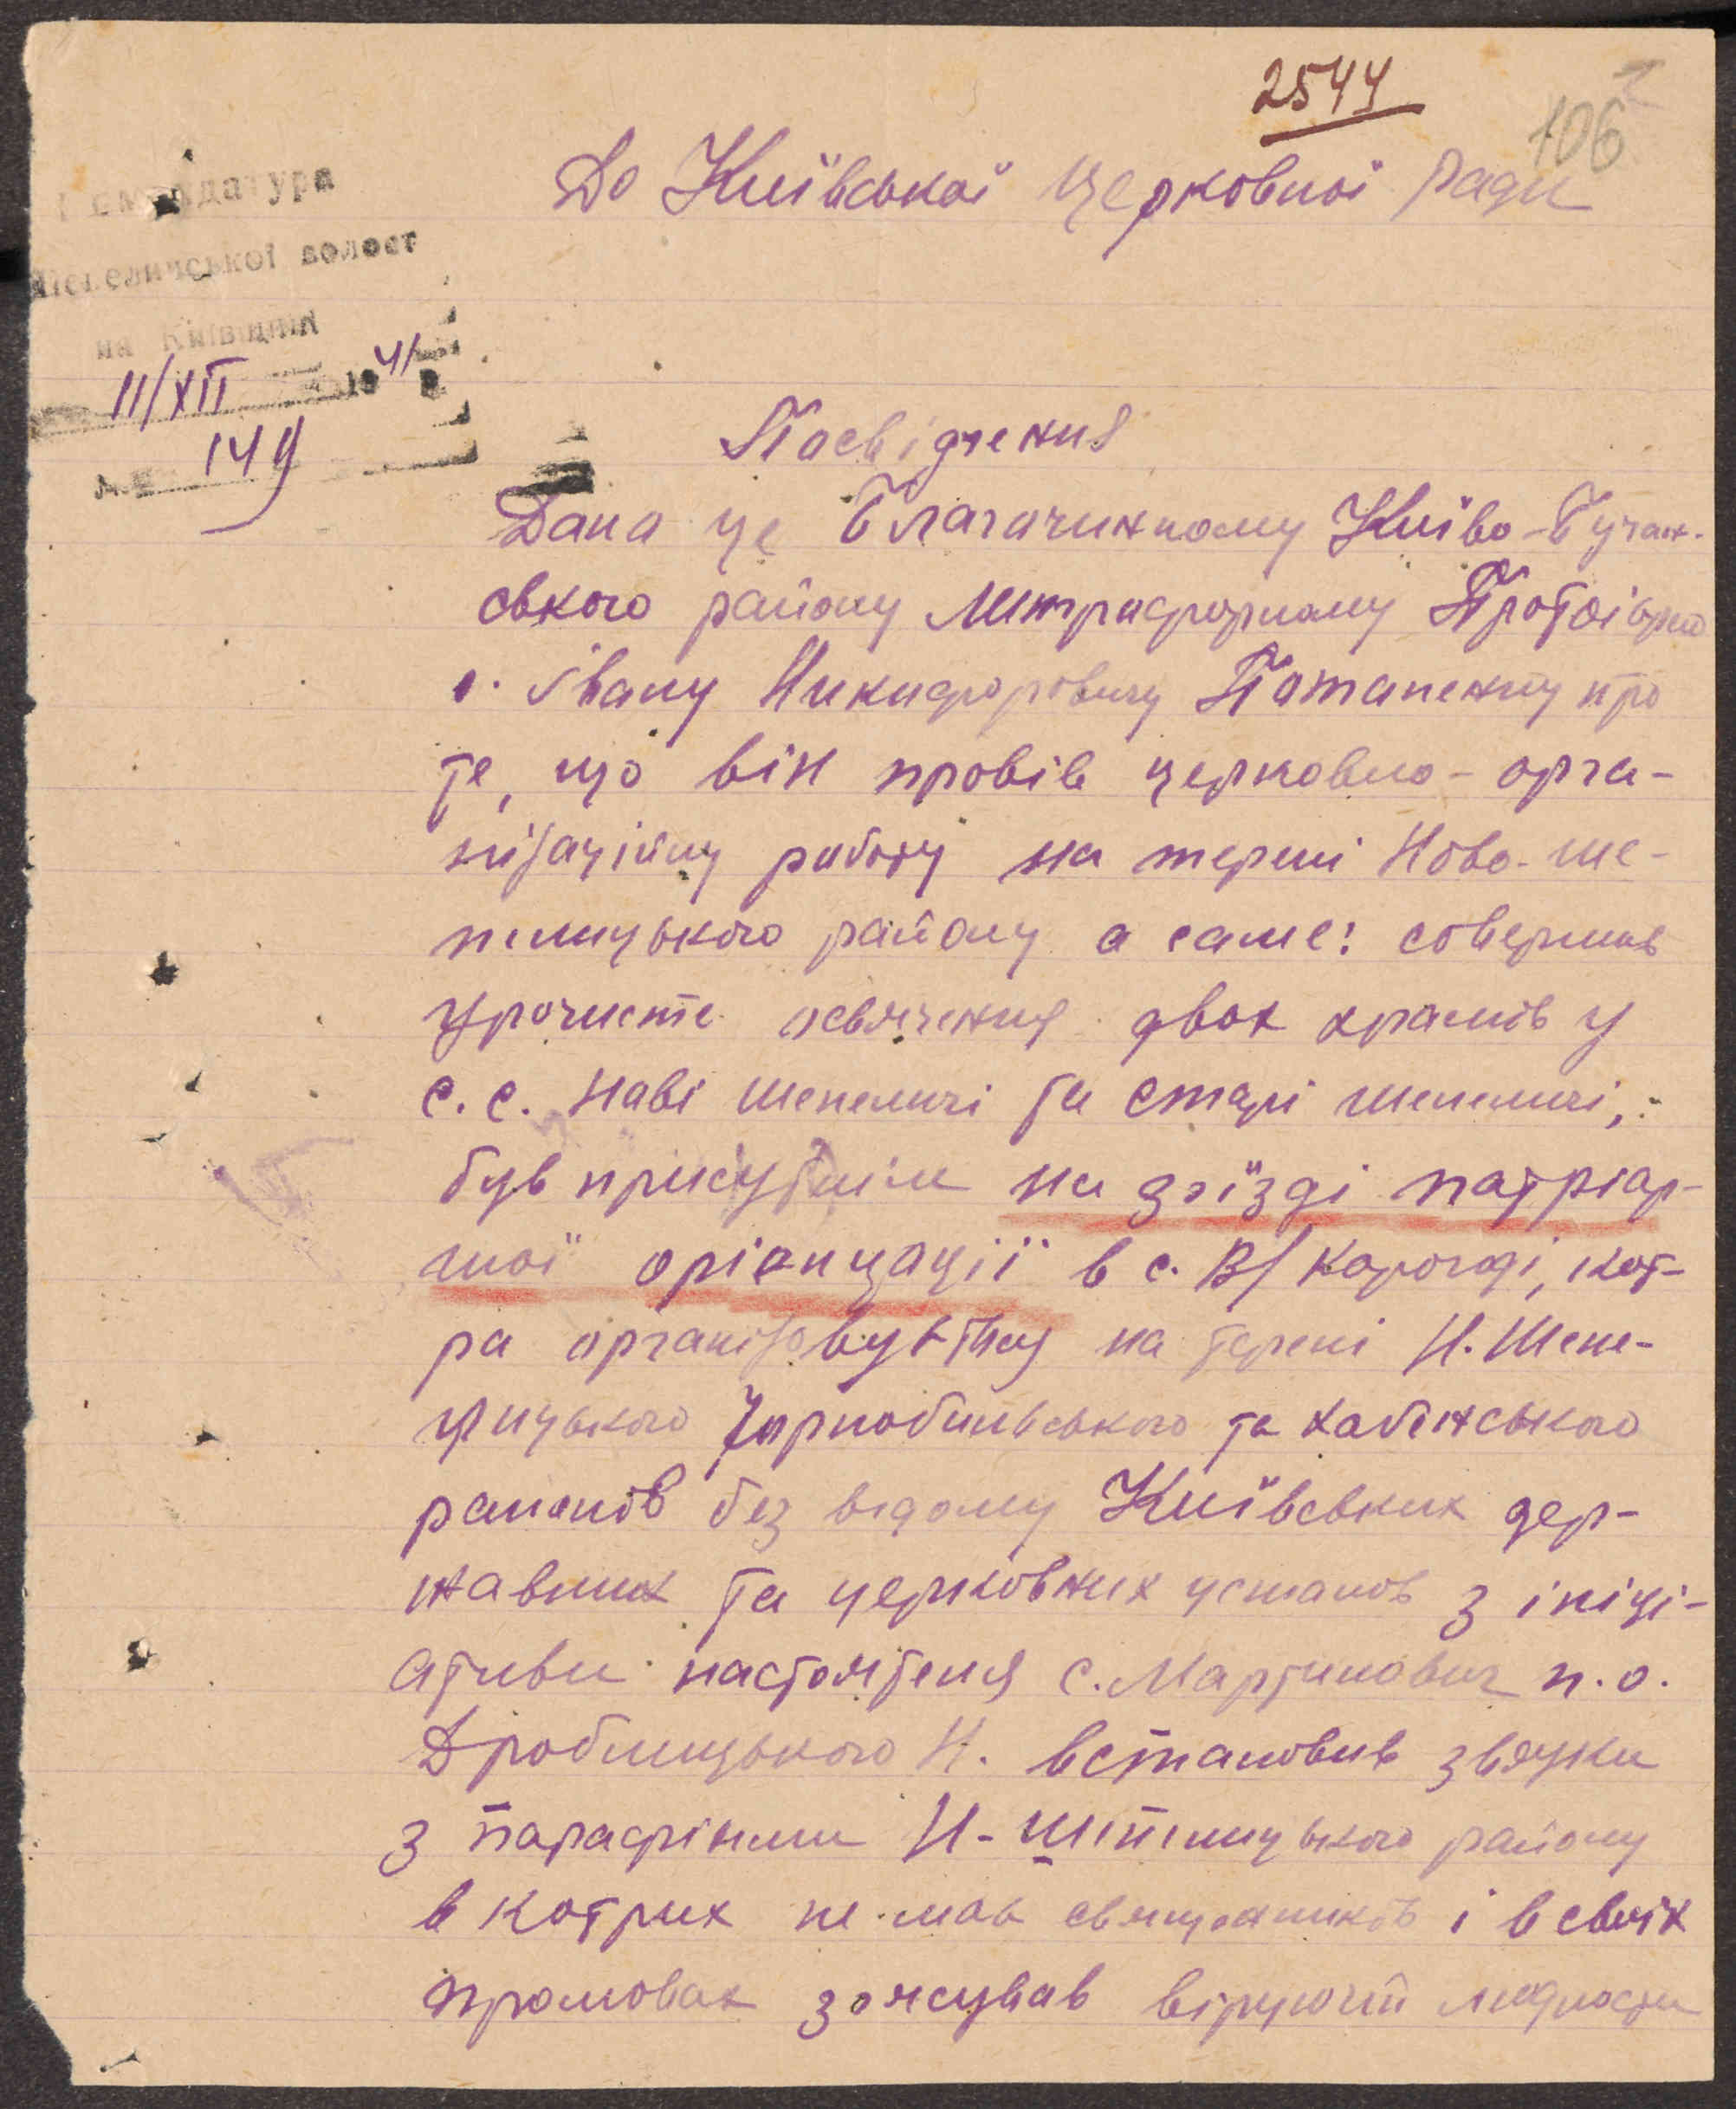 2544
106
До Київської Церковної Ради
Комендатура
Шепелицької волост
на Київщині
11/XII 1941 р.
№ 149
Посвідчення
Дана це Благочинному Київо-Бучан-
ського району Митрофорному Протоієрею
о. Івану Никифоровичу Потапенку про
те, що він провів церковно-орга-
нізаційну работу на терені Ново-Ше-
пелицького району а саме: совершив
урочисте освячення двох храмів у
с.с. Нові Шепеличі та Старі Шепеличі,
був присутнім на зїзді патріар-
шої орієнтації в с. В/Корогоді, кот-
ра організовується на терені Н. Шепе-
лицького Чорнобильського та Хабенського
районів без відому Київських дер-
жавних та церковних установ з ініці-
ативи настоятеля с. Мартинович п.о.
Дроблицького Н. встановив звязки
з парафіями Н-Шепелицького району
в котрих не має священиків і в своїх
промовах зясував віруючій людности